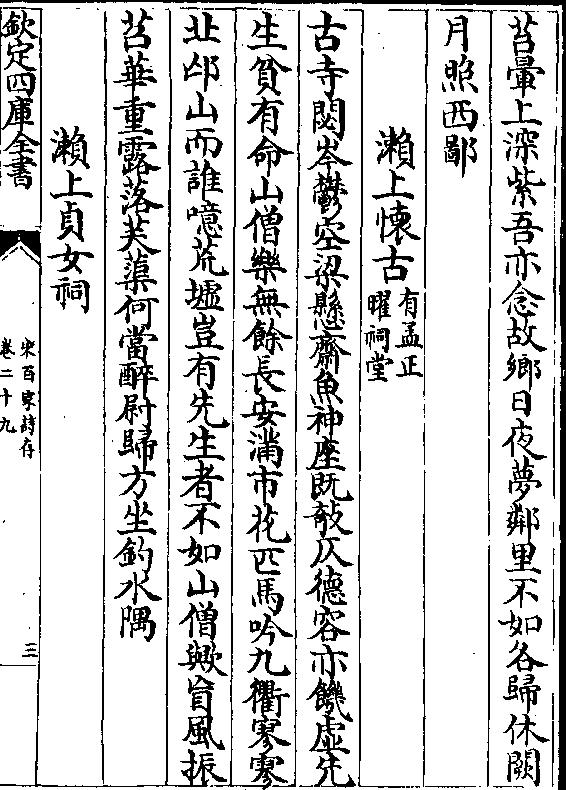 苔暈上深紫吾亦念故鄉日夜夢鄰里不如各歸休闕
月照西鄙
瀨上懷古有孟正曜祠堂
古寺閟岑鬱空梁懸齋魚神座既敧仄德容亦饑虛先
生貧有命山僧樂無餘長安滿市花匹馬吟九衢寥寥
北邙山而誰噫荒墟豈有先生者不如山僧歟旨風振
苕華重露落芙蕖何當醉尉歸方坐釣水隅
瀨上貞女祠
欽定四庫全書
宋百家詩存
卷二十九
三